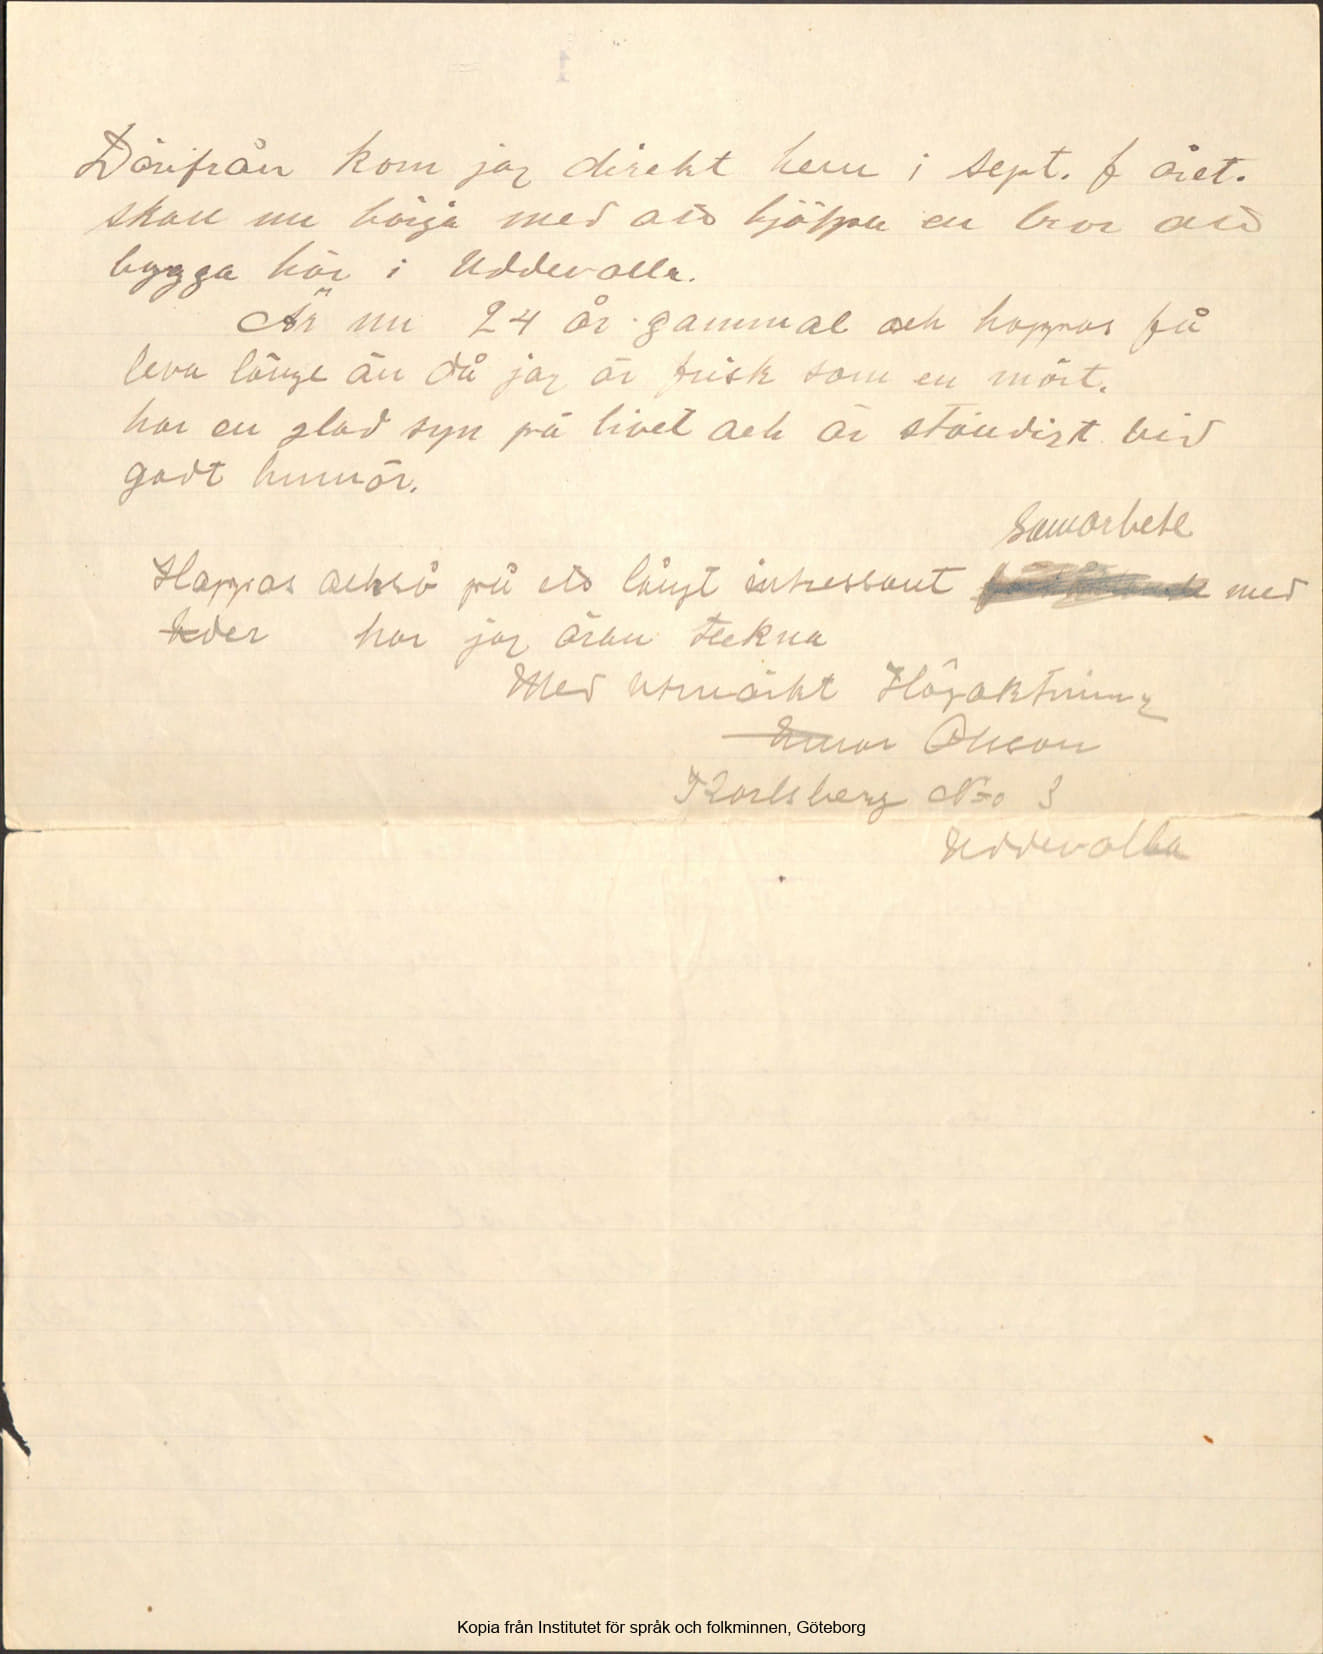 Därifrån kom jag direkt hem i sept. f året.
skall nu börja med att hjälpa en bror att
bygga här i Uddevalla.
Är nu 24 år gammal och hoppas få
leva länge än då jag är frisk som en mört.
har en glad syn på livet och är ständigt vid
godt humör.
Samarbete
Hoppas också på ett långt intressant med
Eder har jag äran teckna
Med utmärkt Högaktning
Einar Olsson
Karlsberg No 3
Uddevalla
Kopia från Institutet för språk och folkminnen, Göteborg